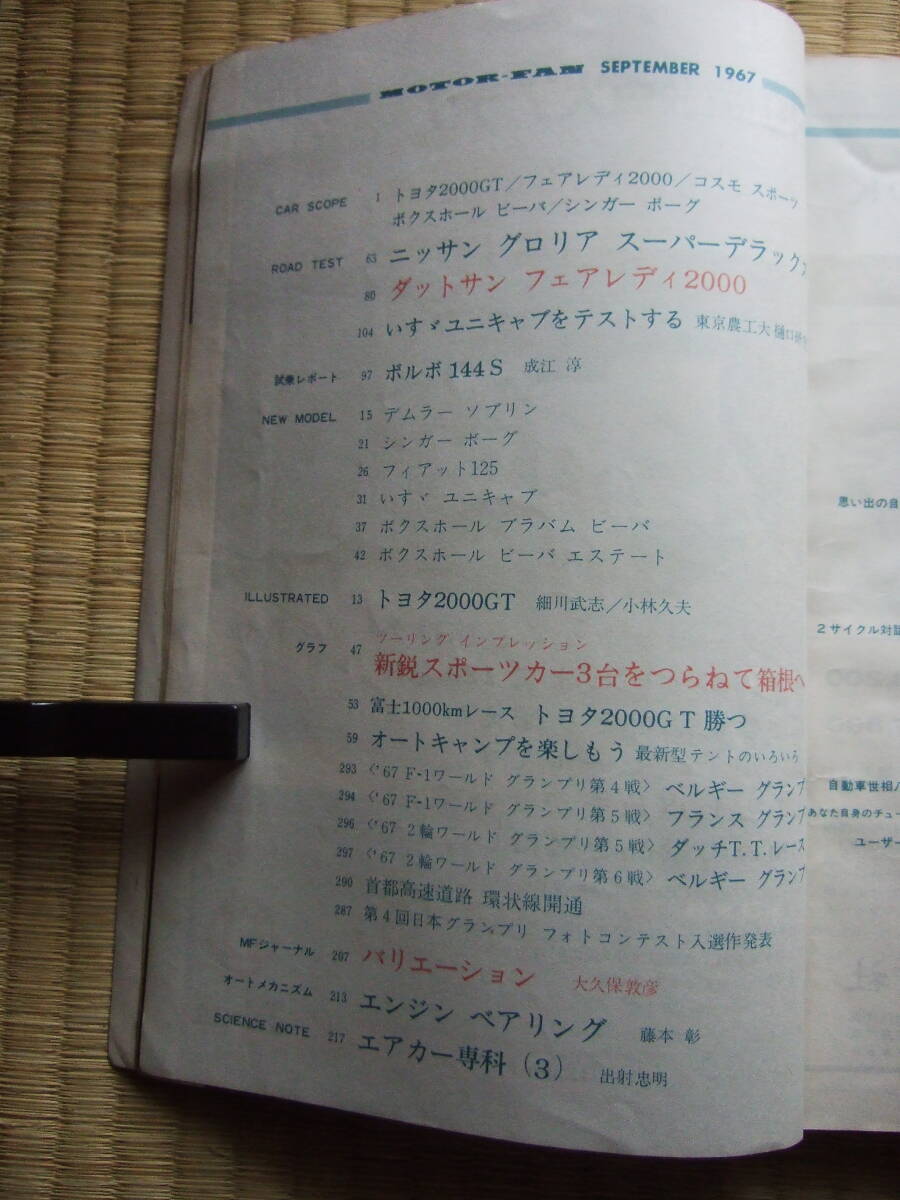 MOTOR-FAN SEPTEMBER 1967
CAR SCOPE 1 トヨタ2000GT／フェアレディ2000／コスモ スポーツ
ボクスホール ビーバ／シンガー ボーグ
ROAD TEST 63 ニッサン グロリア スーパーデラックス
80 ダットサン フェアレディ2000
104 いすゞユニキャブをテストする 東京農工大 樋口
試乗レポート 97 ボルボ 144S 成江 淳
NEW MODEL 15 デムラー ソブリン
21 シンガー ボーグ
26 フィアット125
31 いすゞ ユニキャブ
37 ボクスホール ブラバム ビーバ
42 ボクスホール ビーバ エステート
ILLUSTRATED 13 トヨタ2000GT 細川武志／小林久夫
ツーリング インプレッション
グラフ 47 新鋭スポーツカー3台をつらねて箱根へ
53 富士1000kmレース トヨタ2000GT 勝つ
59 オートキャンプを楽しもう 最新型テントのいろいろ
293 〈'67 F-1ワールド グランプリ第4戦〉 ベルギー グランプ
294 〈'67 F-1ワールド グランプリ第5戦〉 フランス グランプ
296 〈'67 2輪ワールド グランプリ第5戦〉 ダッチT.T.レース
297 〈'67 2輪ワールド グランプリ第6戦〉 ベルギー グランプ
290 首都高速道路 環状線開通
287 第4回日本グランプリ フォトコンテスト入選作発表
MFジャーナル 207 バリエーション 大久保敦彦
オートメカニズム 213 エンジン ベアリング 藤本 彰
SCIENCE NOTE 217 エアカー専科（3） 出射忠明
思い出の自
2サイクル対
自動車世相
あなた自身のチュー
ユーザー
社